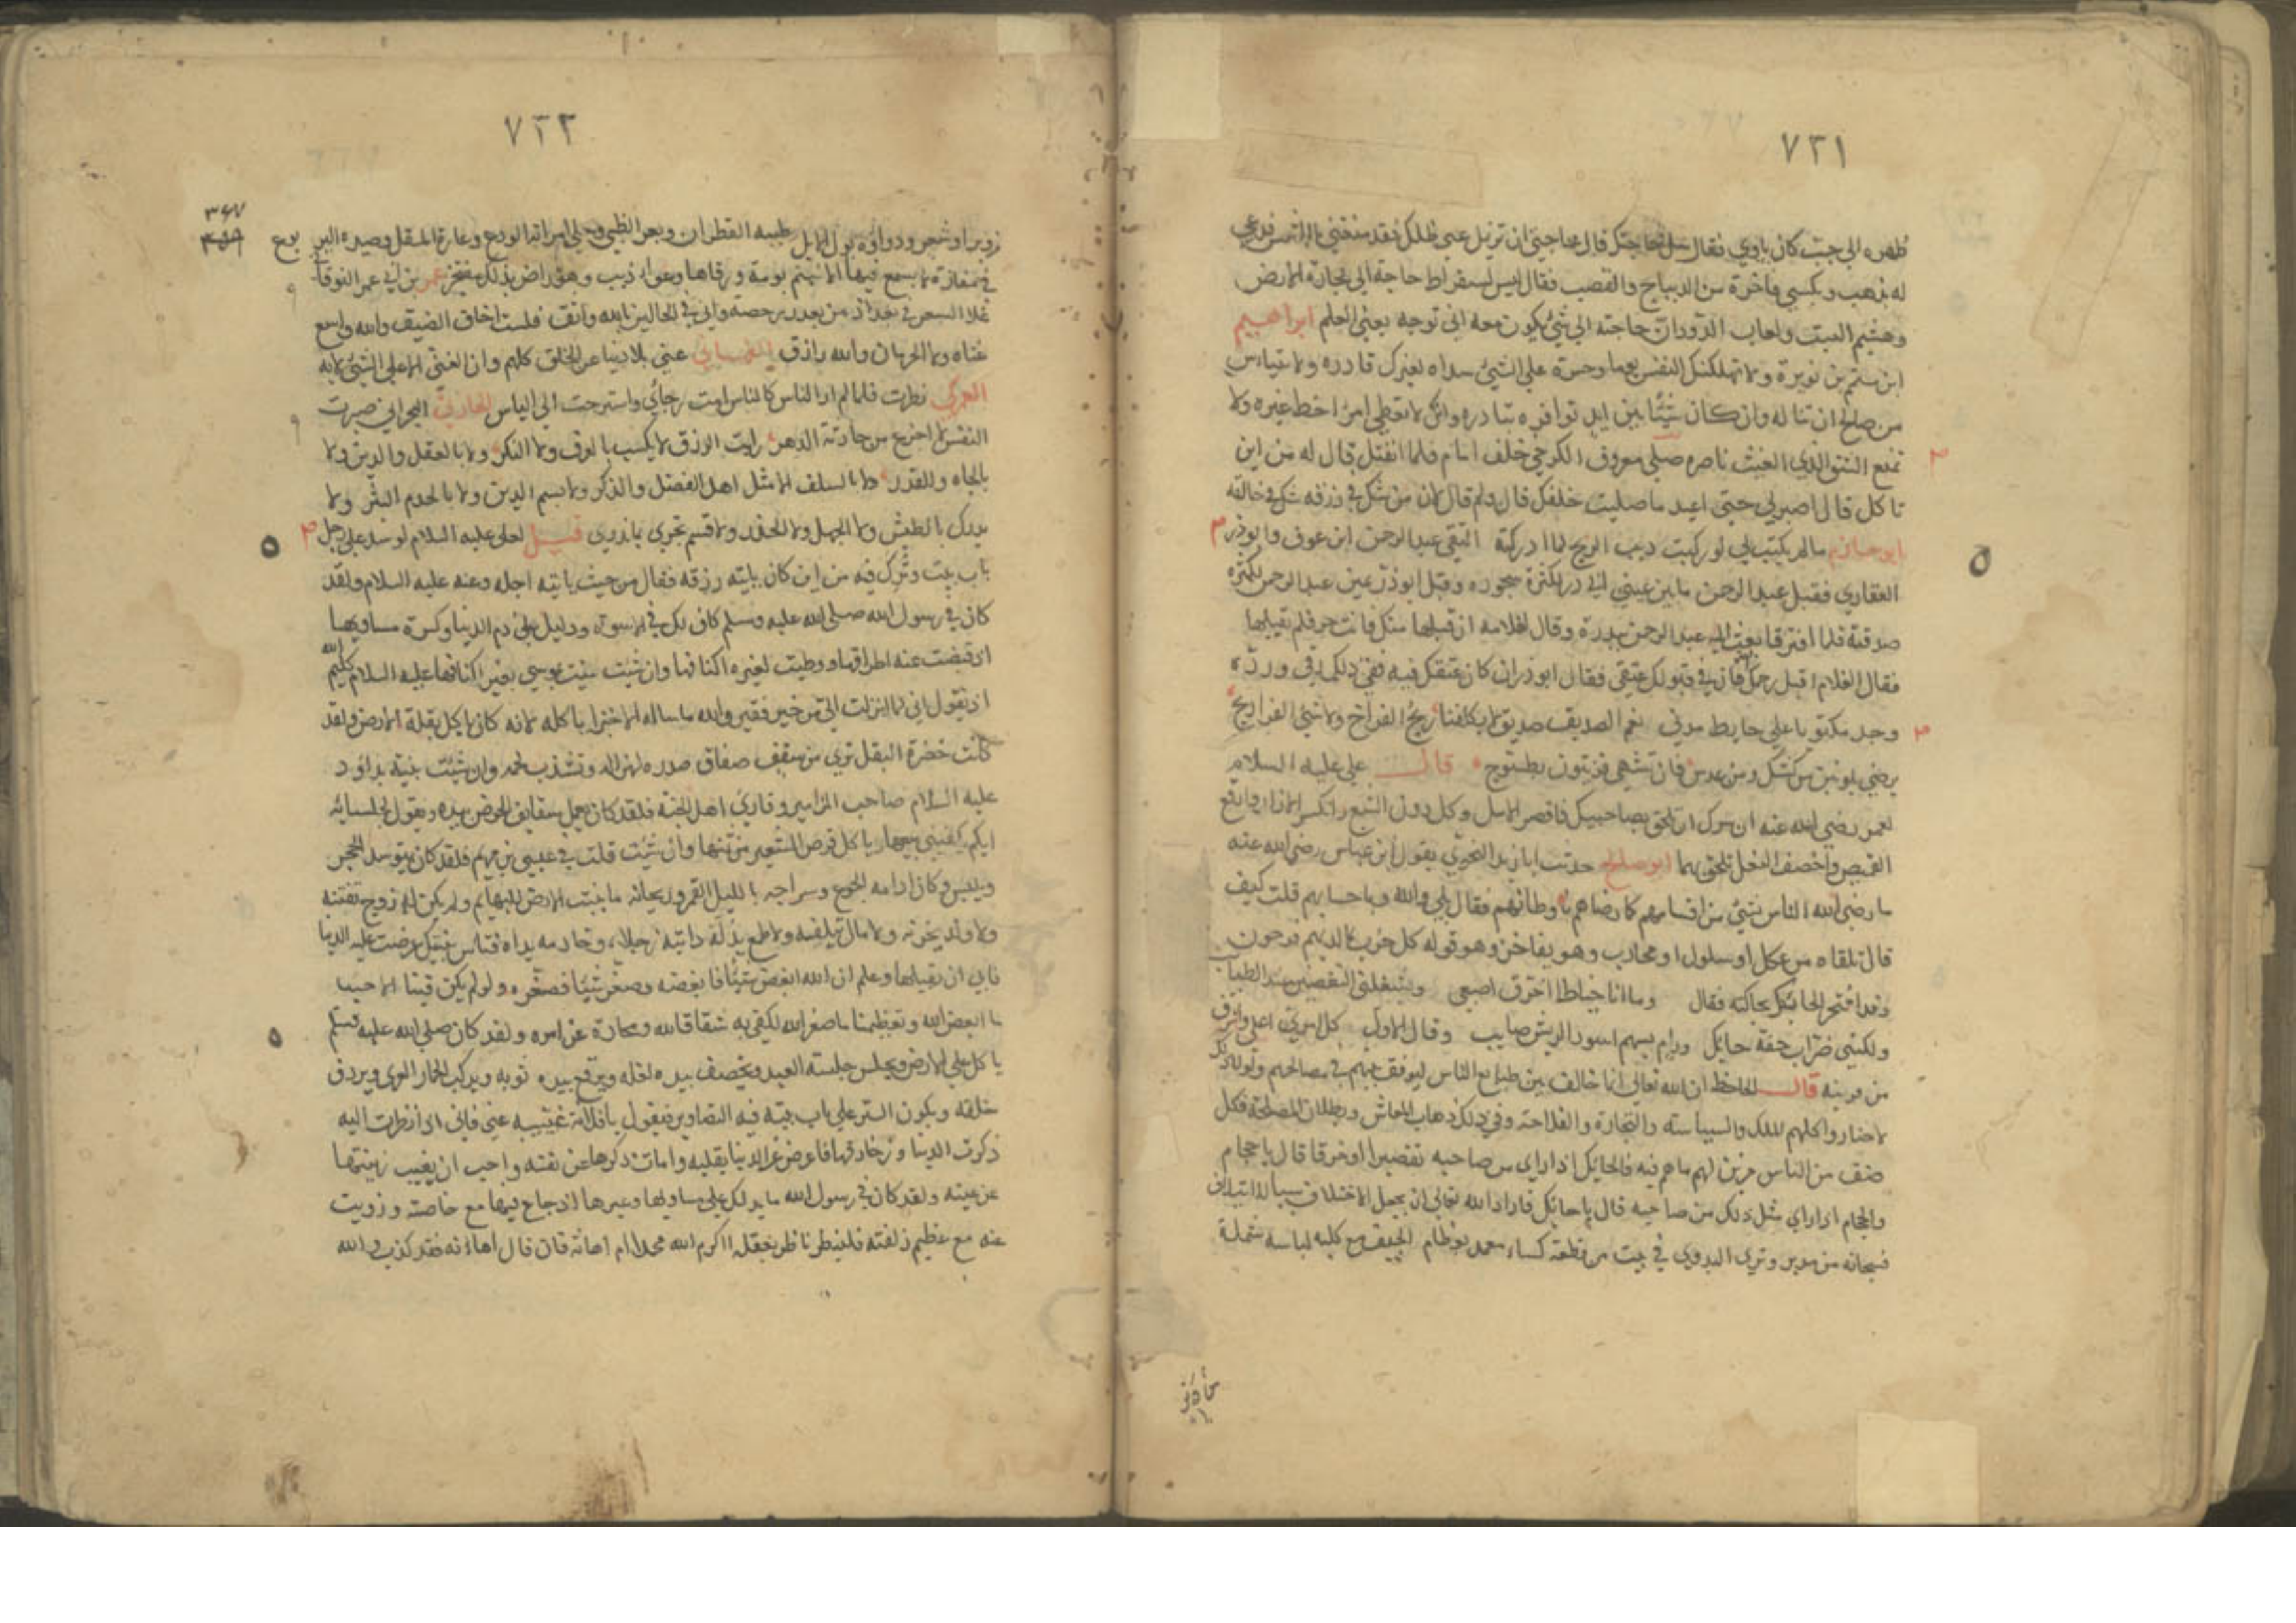 ٧٣١
ظهره الى جب كان ياوي فقال سل حاجتك قال حاجتي ان تزيل عني ظلك فقد منعتني الشمس فدعى
له بذهب وبكسى فاخرة من الديباج والقصب فقال ليس لسقراط حاجة الى حجارة الارض
وهشيم النبت ولعاب الدود ان حاجته الى شئ يكون معه انى توجه يعني العلم ابراهيم
ابن نويرة ولا تهلكنك النفس وحسرة على الشئ سداه لغيرك قادره ولا تيأس
من صالح ان تناله وان كان شيئا بين ايد تبادره وانك لا تعطي امرأ حظ غيره ولا
تمنع الشئ الذي الغيث ناصره صلى معروف الكرخي خلف امام فلما انفتل قال له من اين
تاكل قال اصبر لي حتى اعيد ما صليت خلفك قال ولم قال لان من شك في رزقه شك في خالقه
ابو حازم ما لم يكتب لي لو ركبت الريح لما ادركته التقى عبد الرحمن ابن عوف وابو ذر
الغفاري فقبل عبد الرحمن ما بين عيني ابي ذر لكثرة سجوده وقبل ابو ذر عين عبد الرحمن لكثرة
صدقته فلما افترقا بعث اليه عبد الرحمن ببدرة وقال لغلامه ان قبلها منك فانت حر فلم يقبلها
فقال الغلام اقبل رحمك الله فان في قبولك عتقي فقال ابو ذر ان كان عتقك فيه ففي ذلك رقي ورده
وجد مكتوبا على حايط نعم الصديق صديق لا يكلفنا ذبح الفراخ ولا شئ الفراريج
يرضى بلونين من كشك ومن عدس فان تشهى فزيتون بطسوج قال علي عليه السلام
لعمر رضي الله عنه ان سرك ان تلحق بصاحبيك فاقصر الامل وكل دون الشبع وانكس الازار وارقع
القميص واخصف النعل تلحق بهما ابو صالح حدثت ابا زيد النحوي بقول ابن عباس رضي الله عنه
ما رضى الله الناس بشئ من اقسامهم كما رضاهم باوطانهم فقال بلى والله وباحسابهم قلت كيف
قال تلقاه من عكل او سلول او محارب وهو يفاخر وهو قوله كل حزب بما لديهم فرحون
وقد افتخر الحايك بحياكته فقال وما انا خياطا اخرق اصبعي
ولكنني ضراب حفة حايك ورام بسهم اسود الريش صايب وقال الاول كل امرئ اعلى واشرف
من قرينه قال الجاحظ ان الله تعالى انما خالف بين طبايع الناس ليوفق بينهم في مصالحهم ولولا ذلك
لاختاروا كلهم الملك والسياسة والتجارة والفلاحة وفي ذلك ذهاب المعاش وبطلان المصلحة فكل
صنف من الناس مزين لهم ما هم فيه فالحايك اذا راى من صاحبه تقصيرا او خرقا قال يا حجام
والحجام اذا راى مثل ذلك من صاحبه قال يا حايك فاراد الله تعالى ان يجعل الاختلاف سببا للائتلاف
فسبحانه من مدبر وترى البدوي في بيت من قطعة كساء معمد بعظام الجيف مع كلبه لباسه شملة
٧٣٢
٣٦٧
من وبر او شعر ودواؤه بول الابل وطيبه القطران وبعر الظبي وحلي امراته الودع وصيده اليربوع
في مفازة لا يسمع فيها وهو راض بذلك مفتخر
غلا السعر في بغداد من بعد رخصه واني في الحالين بالله واثق فلست اخاف الضيق والله واسع
غناه ولا الحرمان والله رازق غني بلا دنيا عن الخلق كلهم وان الغنى الاعلى عن الشئ لا به
نظرت فلما لم ار الناس كالناس امت رجائي واسترحت الى الياس صبرت
النفس لا اجزع من حادثة الدهر رايت الرزق لا يكسب بالعرف ولا النكر ولا بالعقل والدين ولا
بالجاه والقدر ولا بالسلف الامثل اهل الفضل والذكر
يدرك بالطيش ولا الجهل ولا الهذر ولا قسم تجري بما ندري قيل لعلي عليه السلام لو سد على رجل
باب بيت وترك فيه من اين كان ياتيه رزقه فقال من حيث ياتيه اجله وعنه عليه السلام ولقد
كان في رسول الله صلى الله عليه وسلم كاف لك في الاسوة ودليل على ذم الدنيا وكثرة مساويها
اذ قبضت عنه اطرافها ووطيت لغيره اكنافها وان شئت ثنيت بموسى كليم الله عليه السلام
اذ يقول اني لما انزلت الي من خير فقير والله ما ساله الا خبزا ياكله لانه كان ياكل بقلة الارض ولقد
كانت خضرة البقل ترى من شفيف صفاق صدره لهزاله وتشذب لحمه وان شئت ثنيته بداود
عليه السلام صاحب المزامير وقاري اهل الجنة فلقد كان يعمل سفايف الخوص بيده ويقول لجلسائه
ايكم يكفيني بيعها وياكل قرص الشعير من ثمنها وان شئت قلت في عيسى بن مريم فلقد كان يتوسد الحجر
ويلبس وكان ادامه الجوع وسراجه بالليل القمر وريحانه ما تنبت الارض للبهايم ولم يكن له زوج تفتنه
ولا ولد يحزنه ولا مال يلفته ولا طمع يذله دابته رجلاه وخادمه يداه فتاس بنبيك عرضت عليه الدنيا
فابى ان يقبلها وعلم ان الله ابغض شيئا فابغضه وصغر شيئا فصغره ولو لم يكن فينا الا حبنا
ما ابغض الله وتعظيمنا ما صغر الله لكفى به شقاقا لله ومحادة عن امره ولقد كان صلى الله عليه وسلم
ياكل على الارض ويجلس جلسة العبد ويخصف بيده نعله ويرقع بيده ثوبه ويركب الحمار العري ويردف
خلفه ويكون الستر على باب بيته فيه التصاوير فيقول يا فلانة غيبيه عني فاني اذا نظرت اليه
ذكرت الدنيا وزخارفها فاعرض عن الدنيا بقلبه وامات ذكرها عن نفسه واحب ان يغيب زينتها
عن عينه ولقد كان في رسول الله ما يدلك على مساويها وعيبها اذ جاع فيها مع خاصته وزويت
عنه مع عظيم زلفته فلينظر ناظر بعقله اكرم الله محمدا ام اهانه فان قال اهانه فقد كذب والله